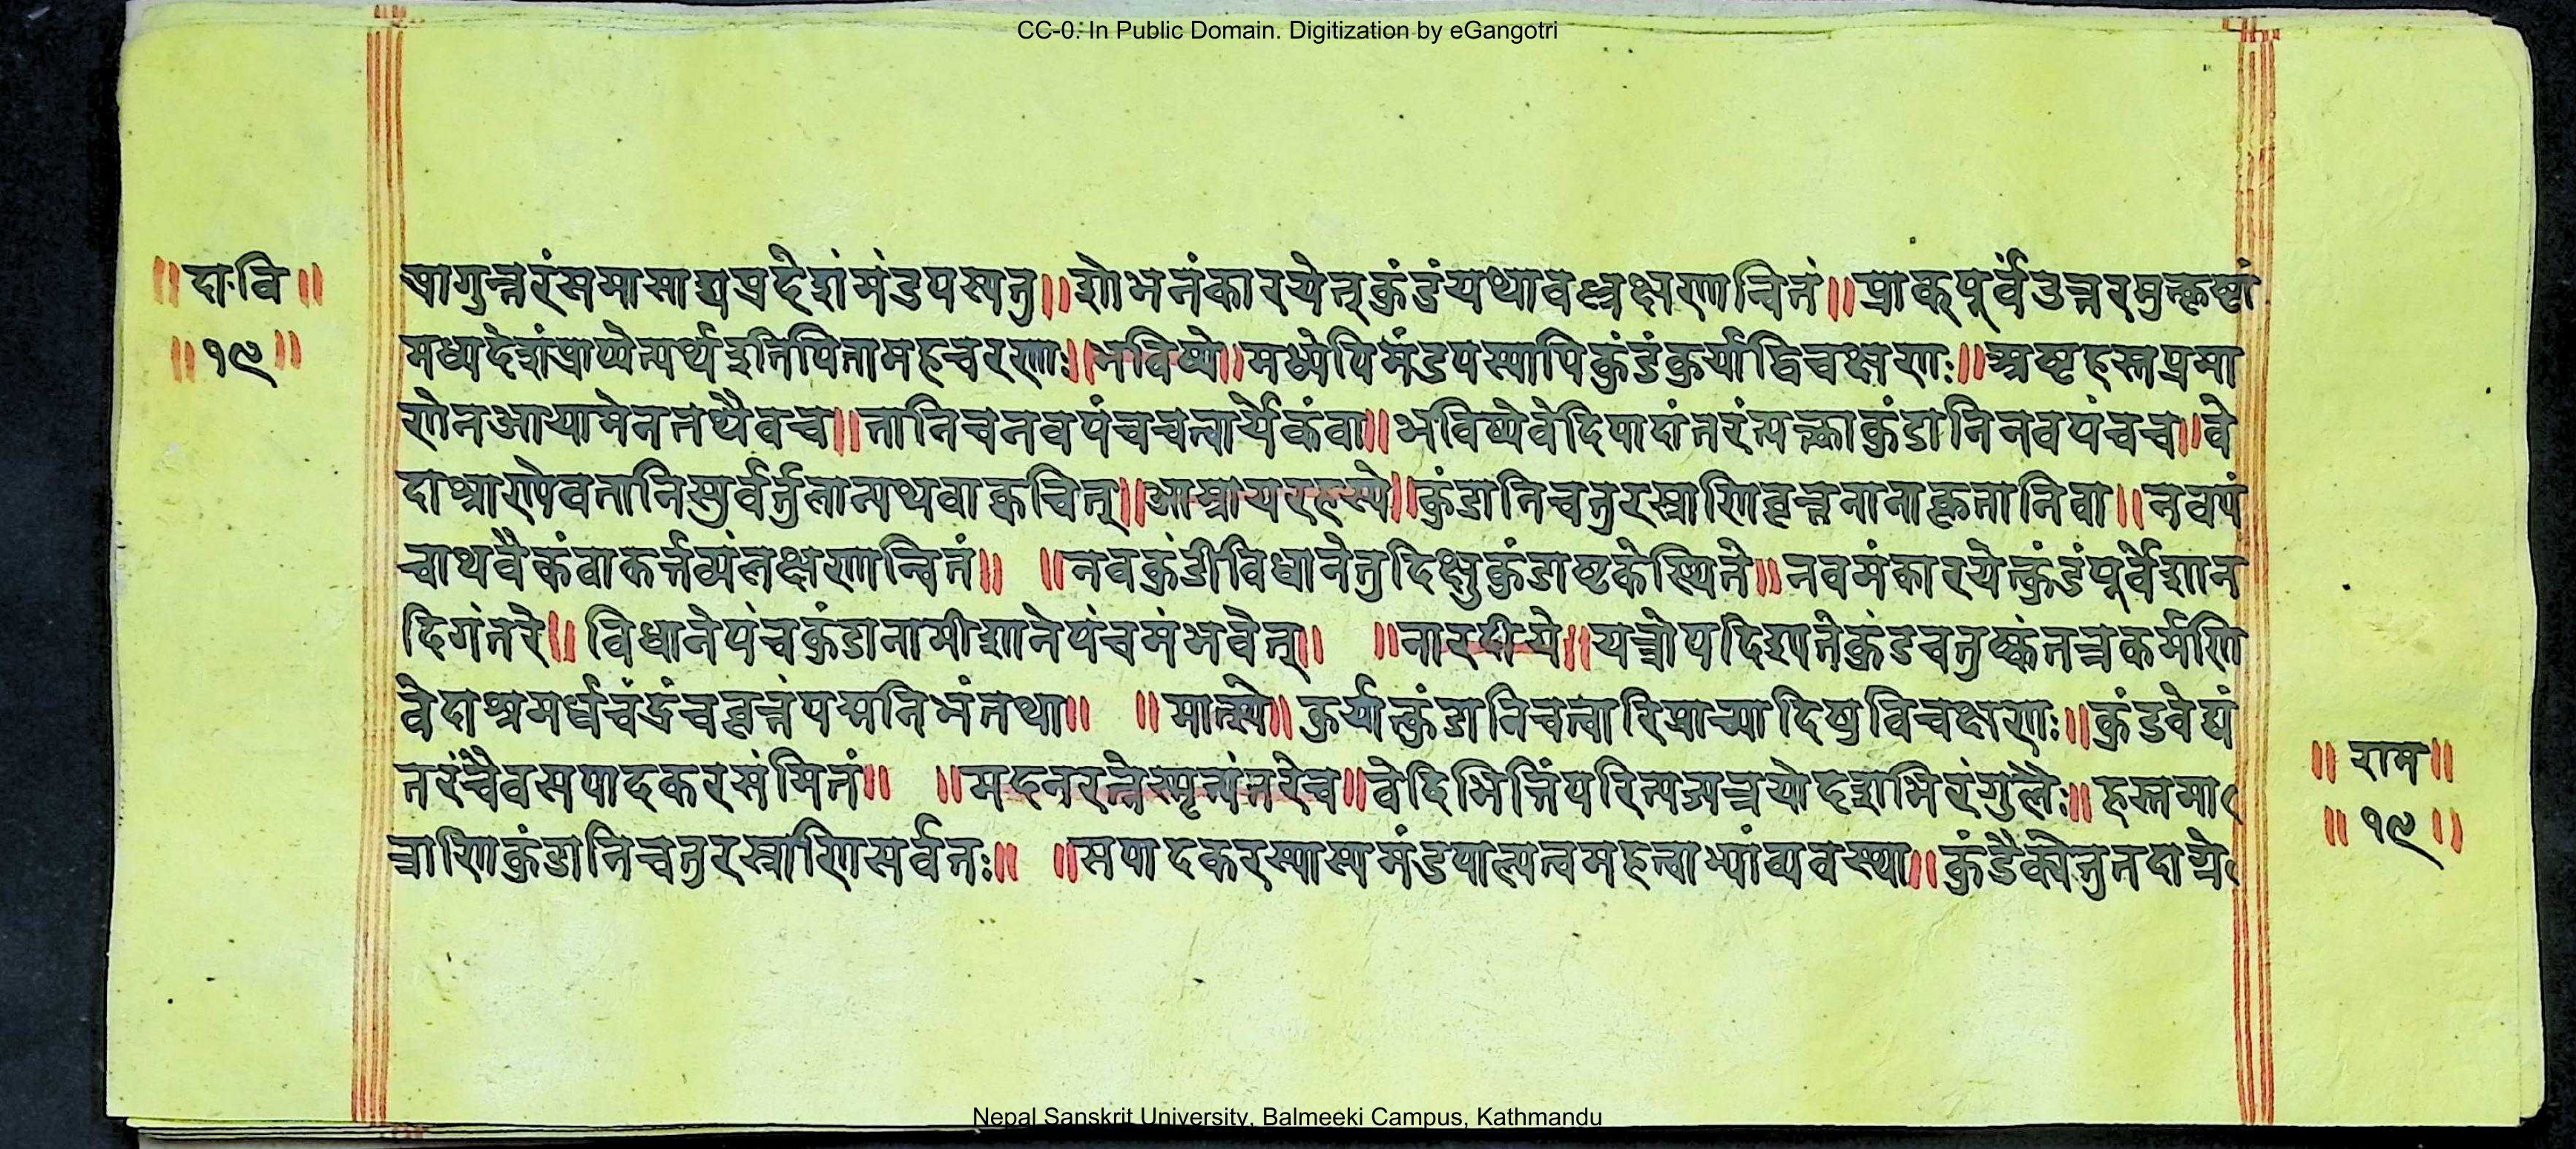 CC-0. In Public Domain. Digitization by eGangotri
॥दा.वि॥
॥१९॥
प्रागुत्तरंसमासाद्यप्रदेशंमंडपस्यतु॥शोभनंकारयेत्कुंडंयथावल्लक्षणान्वितं॥प्राक्पूर्वंउत्तरमुत्कृष्टां
मध्यदेशंप्राप्येत्यर्थइतिपितामहचरणाः॥भविष्ये॥मध्येपिमंडपस्यापिकुंडंकुर्याद्विचक्षणः॥अष्टहस्तप्रमा
णेनआयामेनतथैवच॥तानिचनवपंचचत्वार्येकंवा॥भविष्येवेदिपादांतरंत्यक्त्वाकुंडानिनवपंचच॥वे
दाश्राण्येवतानिस्युर्वर्तुलान्यथवाक्वचित्॥आम्नायरहस्ये॥कुंडानिचतुरस्राणिवृत्तनानाकृतानिवा॥नवपं
चाथवैकंवाकर्त्तव्यंलक्षणान्वितं॥ ॥नवकुंडीविधानेतुदिक्षुकुंडाष्टकेस्थिते॥नवमंकारयेत्कुंडंपूर्वेशान
दिगंतरे॥विधानेपंचकुंडानामीशानेपंचमंभवेत्॥ ॥नारदीये॥यत्रोपदिश्यतेकुंडचतुष्कंतत्रकर्मणि
वेदाश्रमर्धचंद्रंचवृत्तंपद्मनिभंतथा॥ ॥मात्स्ये॥कुर्यात्कुंडानिचत्वारिप्राच्यादिषुविचक्षणः॥कुंडवेद्यं
तरंचैवसपादकरसंमितं॥ ॥मदनरत्नेस्मृत्यंतरेच॥वेदिभित्तिंपरित्यज्यत्रयोदशभिरंगुलैः॥हस्तमा
त्राणिकुंडानिचतुरस्राणिसर्वतः॥ ॥सपादकरस्यास्यमंडपाल्पत्वमहत्वाभ्यांव्यवस्था॥कुंडैकौतुतदाग्रे
॥राम॥
॥१९॥
Nepal Sanskrit University, Balmeeki Campus, Kathmandu